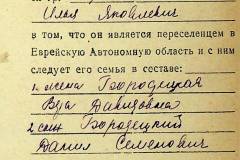 Илья Яковлевич
в том, что он является переселенцем в
Еврейскую Автономную область и с ним
следует его семья в составе:
1. жена Бородецкая
Давидовна
2. сын Бородецкий
Данил Семенович